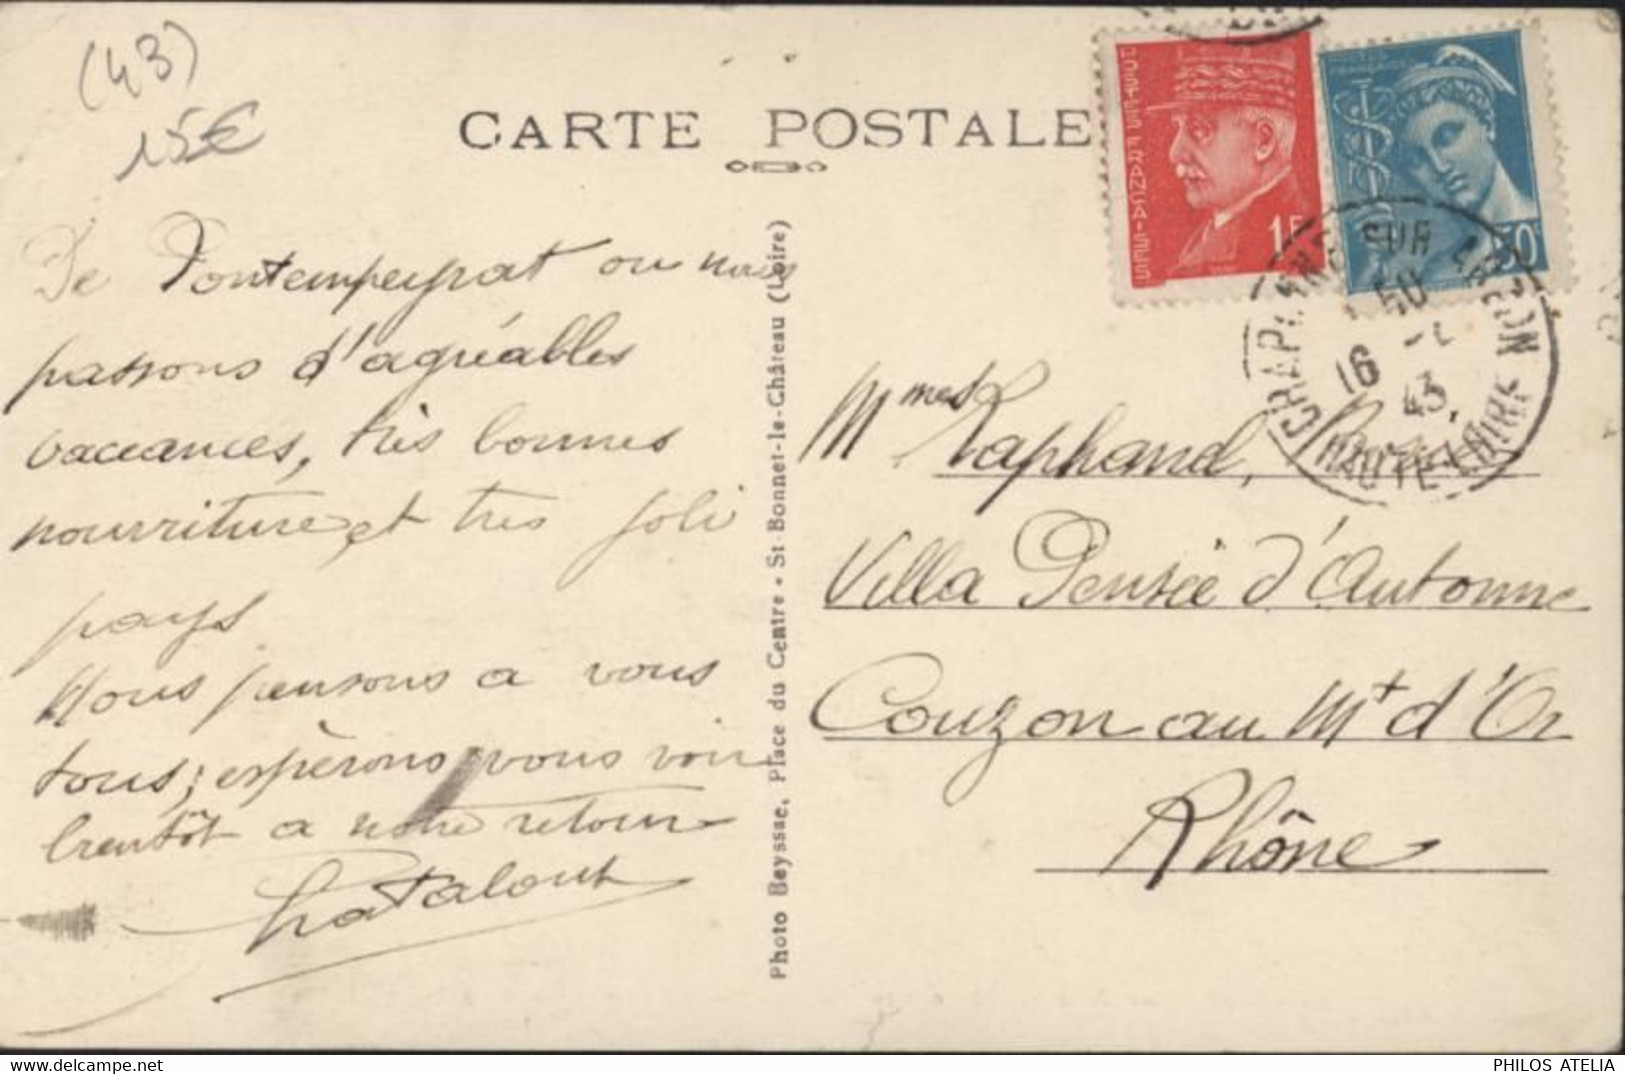 (43)
15€
CARTE POSTALE
POSTES FRANÇAISES
1F
50c
CRAPONNE SUR ARZON
16
43
HAUTE-LOIRE
De Pontempeyrat ou nous
passons d'agréables
vaccances, très bonnes
nourriture et tres joli
pays.
Nous pensons a vous
tous; espèrons vous voir
bientôt a notre retour
Photo Beysse, Place du Centre - St-Bonnet-le-Château (Loire)
Mmes Raphand,
Villa Pensée d'Automne
Couzon au Mt d'Or
Rhône
PHILOS ATELIA